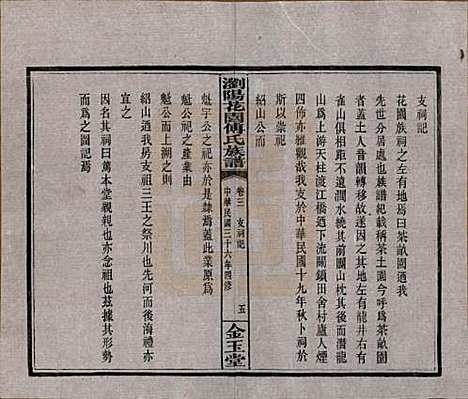 支祠記
花園族祠之左有地焉曰茶畝園迺我
先世分居處也族譜紀載稱茶土園今呼爲茶畝園
者蓋以年久音韻轉移故遂因之地左有龍井右有
雀山俱距不遠澗水繞其前關山枕其後而潛龍
山爲上游天柱渡江橋迺下流關鎖田舍村廬人煙
四佈亦雅觀哉我族於中華民國十九年秋卜祠於
斯以崇祀
紹山公而
瀏陽花園傅氏族譜
卷三 支祠記
中華民國三十六年四修
五
金玉堂
魁宇公之祀亦於是肄焉蓋此業原爲
魁公祀產也
魁公而上溯之則
紹山迺我房支祖三王之祭川也先河而後海禮亦
宜之
因名其祠曰篤本堂親斯祠也亦念祖也因其形勢
而爲之圖記焉